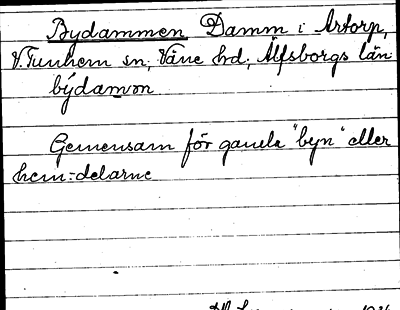 Bydammen Damm i Artorp,
V. Tunhem sn, Väne hd, Älfsborgs län
býdamon
Gemensam för gamla "byn" eller
hem=delarne